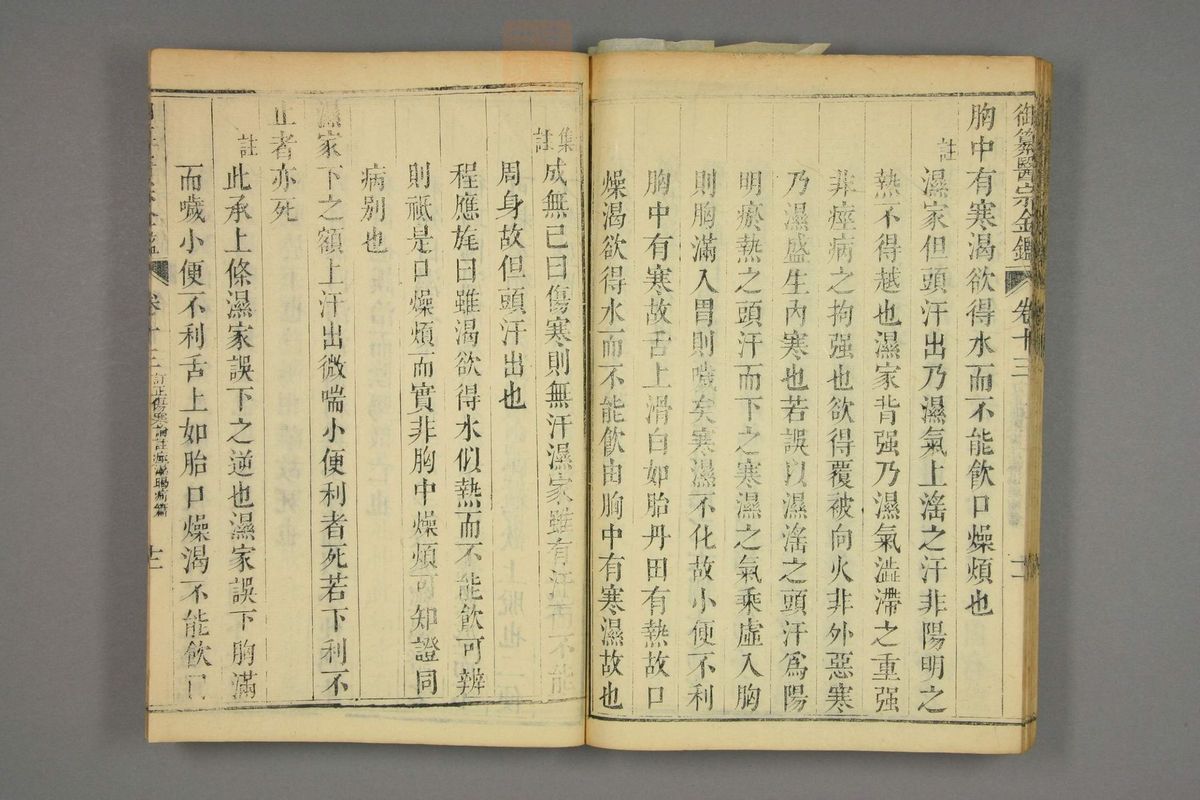 御纂醫宗金鑑 卷十三
胸中有寒渴欲得水而不能飲口燥煩也
註
濕家但頭汗出乃濕氣上淫之汗非陽明之
熱不得越也濕家背强乃濕氣澁滯之重强
非痙病之拘强也欲得覆被向火非外惡寒
乃濕盛生內寒也若誤以濕淫之頭汗爲陽
明瘀熱之頭汗而下之寒濕之氣乘虛入胸
則胸滿入胃則噦矣寒濕不化故小便不利
胸中有寒故舌上滑白如胎丹田有熱故口
燥渴欲得水而不能飲由胸中有寒濕故也
集註
成無已曰傷寒則無汗濕家雖有汗而不能
周身故但頭汗出也
程應旄曰雖渴欲得水似熱而不能飲可辨
則祗是口燥煩而實非胸中燥煩可知證同
病别也
濕家下之額上汗出微喘小便利者死若下利不
止者亦死
註
此承上條濕家誤下之逆也濕家誤下胸滿
而噦小便不利舌上如胎口燥渴不能飲
卷十三 訂正傷寒論註 篇